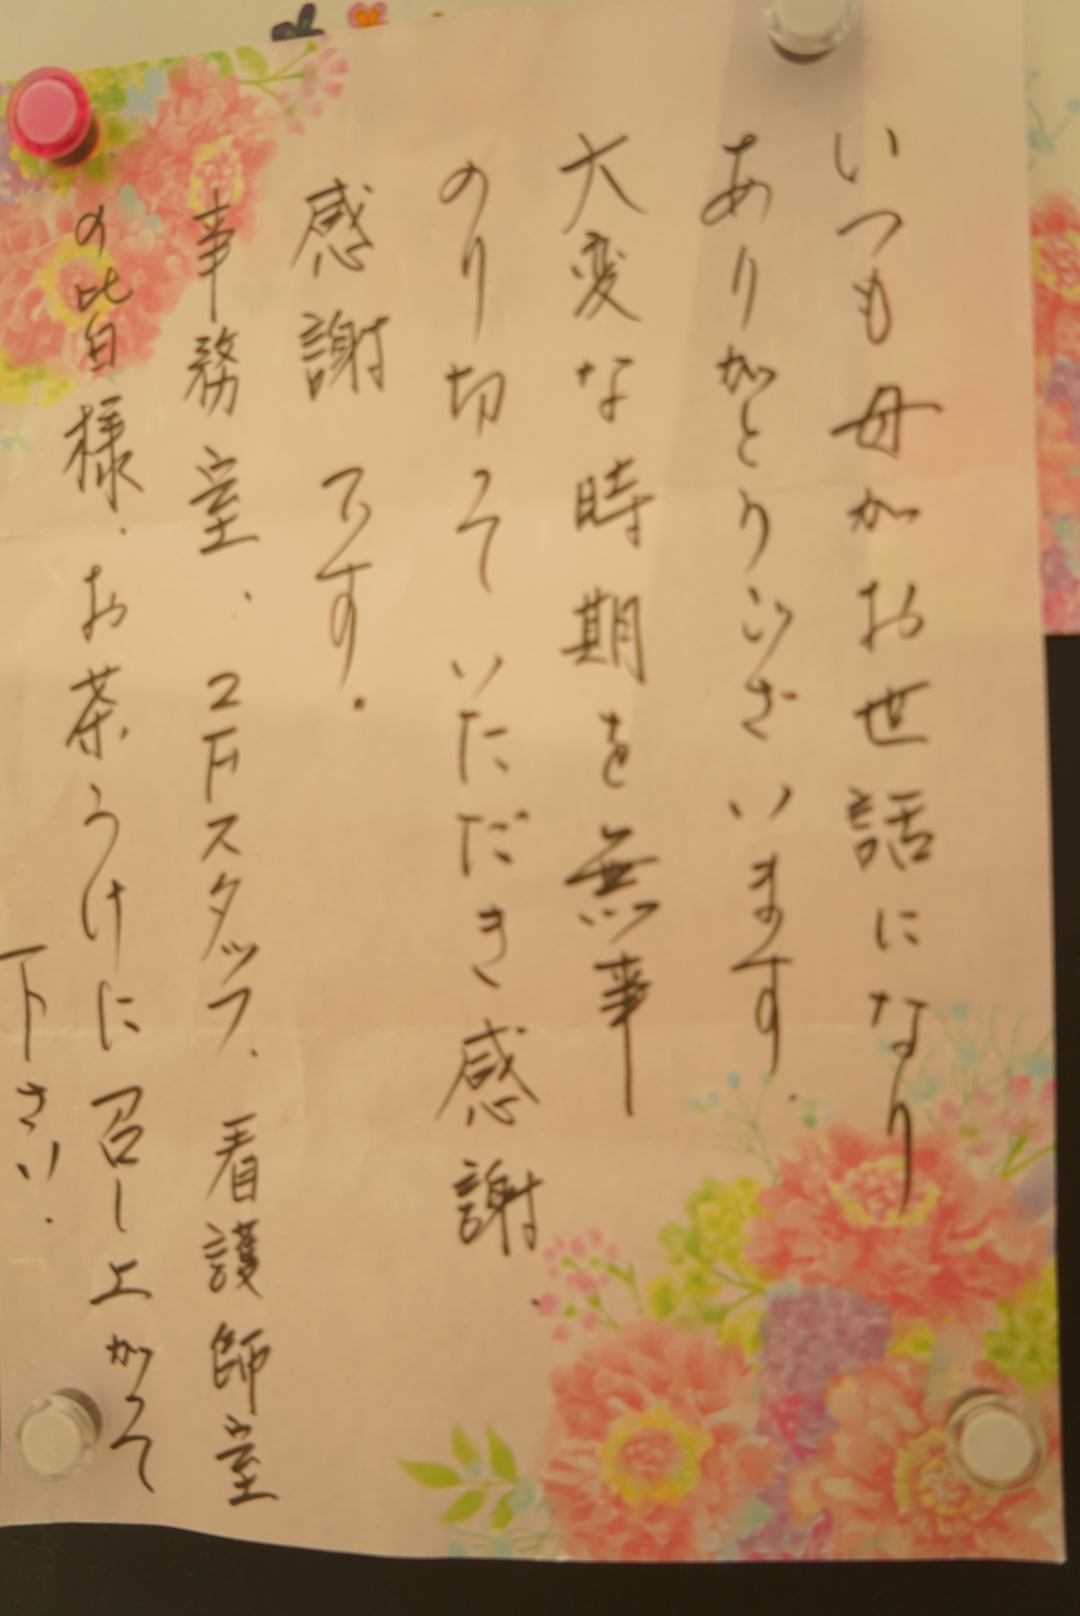 いつも母がお世話になり
ありがとうございます.
大変な時期を無事
のり切っていただき感謝.
感謝です.
事務室. 2Fスタッフ. 看護師室
の皆様. お茶うけに召し上がって
下さい.